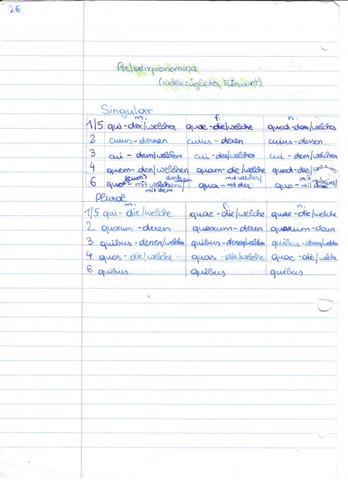 26
Relativpronomina
(rückbezügliches Fürwort)
Singular
m. f. n.
1/5 qui - der/welcher quae - die/welche quod - das/welches
2 cuius - dessen cuius - deren cuius - dessen
3 cui - dem/welchem cui - der/welcher cui - dem/welchem
4 quem - den/welchen quam - die/welche quod - das/
6 quo - mit welchem/ mit dem qua - mit der mit welcher/ quo - mit dem
Plural m. f. n.
1/5 qui - die/welche quae - die/welche quae - die/welche
2 quorum - deren quarum - deren quorum - deren
3 quibus - denen/welchen quibus - denen/welchen quibus - denen/welchen
4 quos - die/welche quas - die/welche quae - die/welche
6 quibus quibus quibus